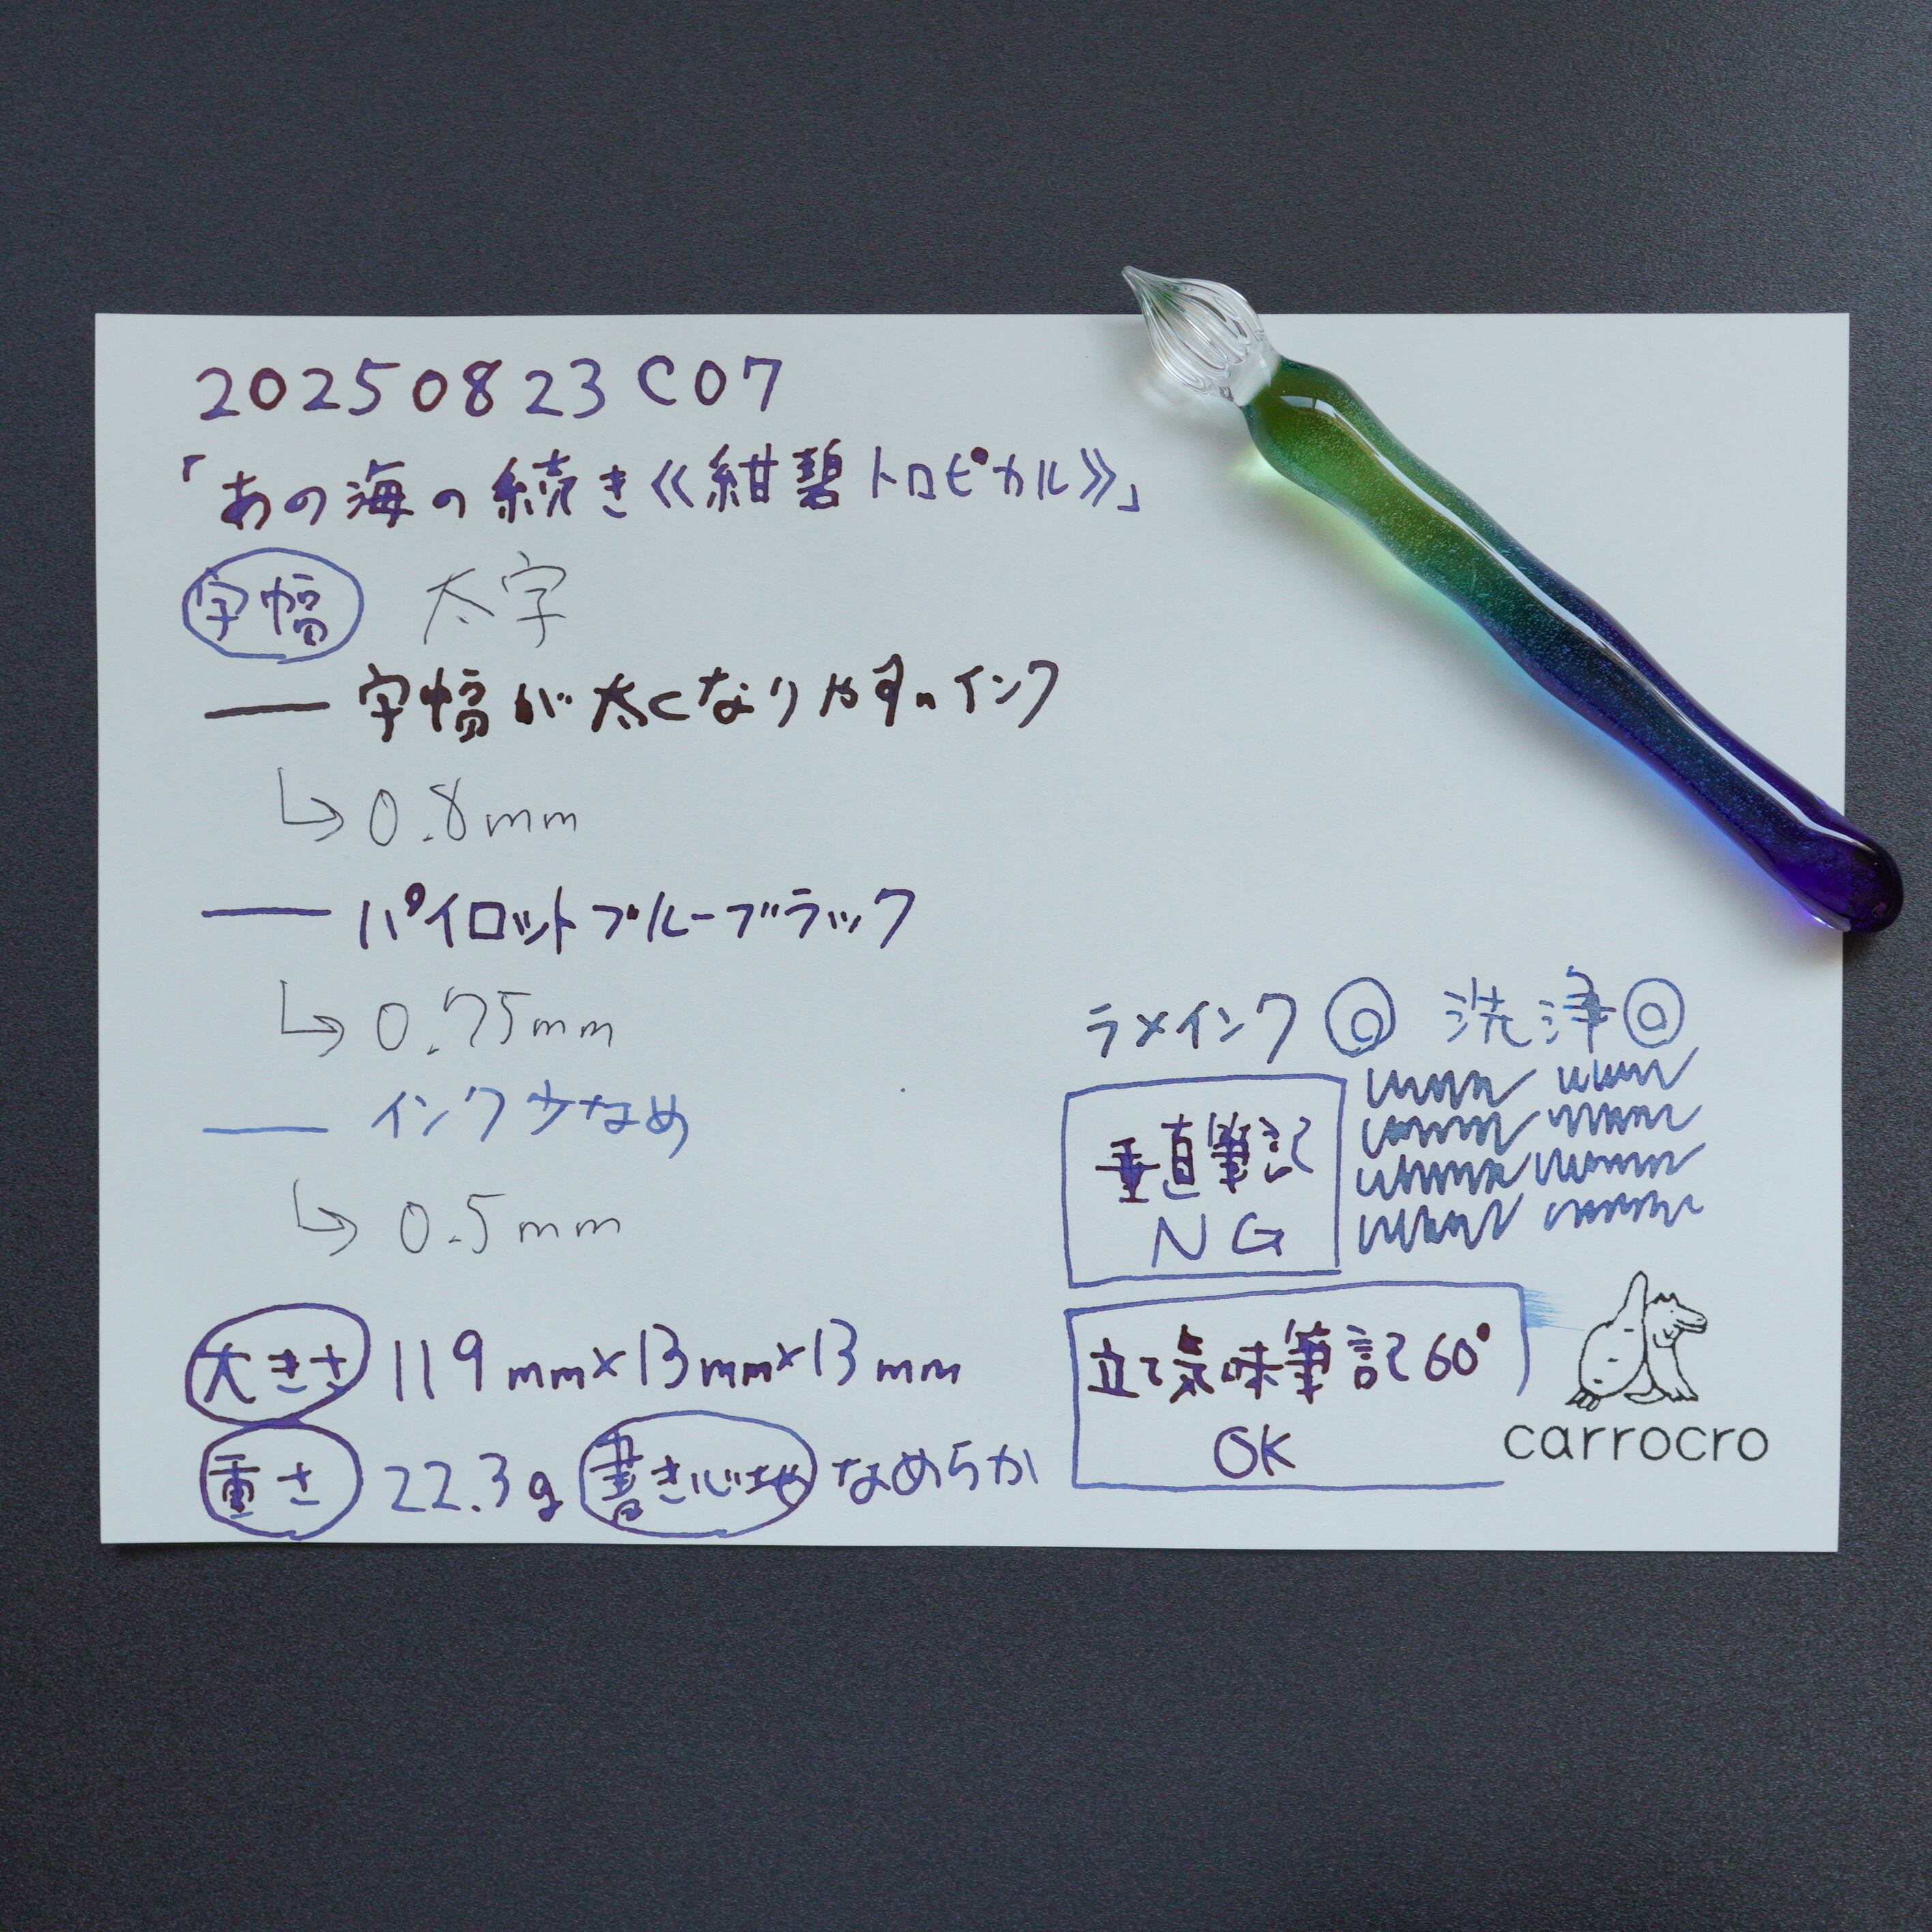 20250823C07
「あの海の続き《紺碧トロピカル》」
字幅 太字
字幅が太くなりやすいインク
0.8mm
パイロットブルーブラック
0.75mm
インク少なめ
0.5mm
大きさ 119mm×13mm×13mm
重さ 22.3g 書き心地 なめらか
ラメインク◎ 洗浄◎
垂直筆記
NG
立て気味筆記60°
OK
carrocro